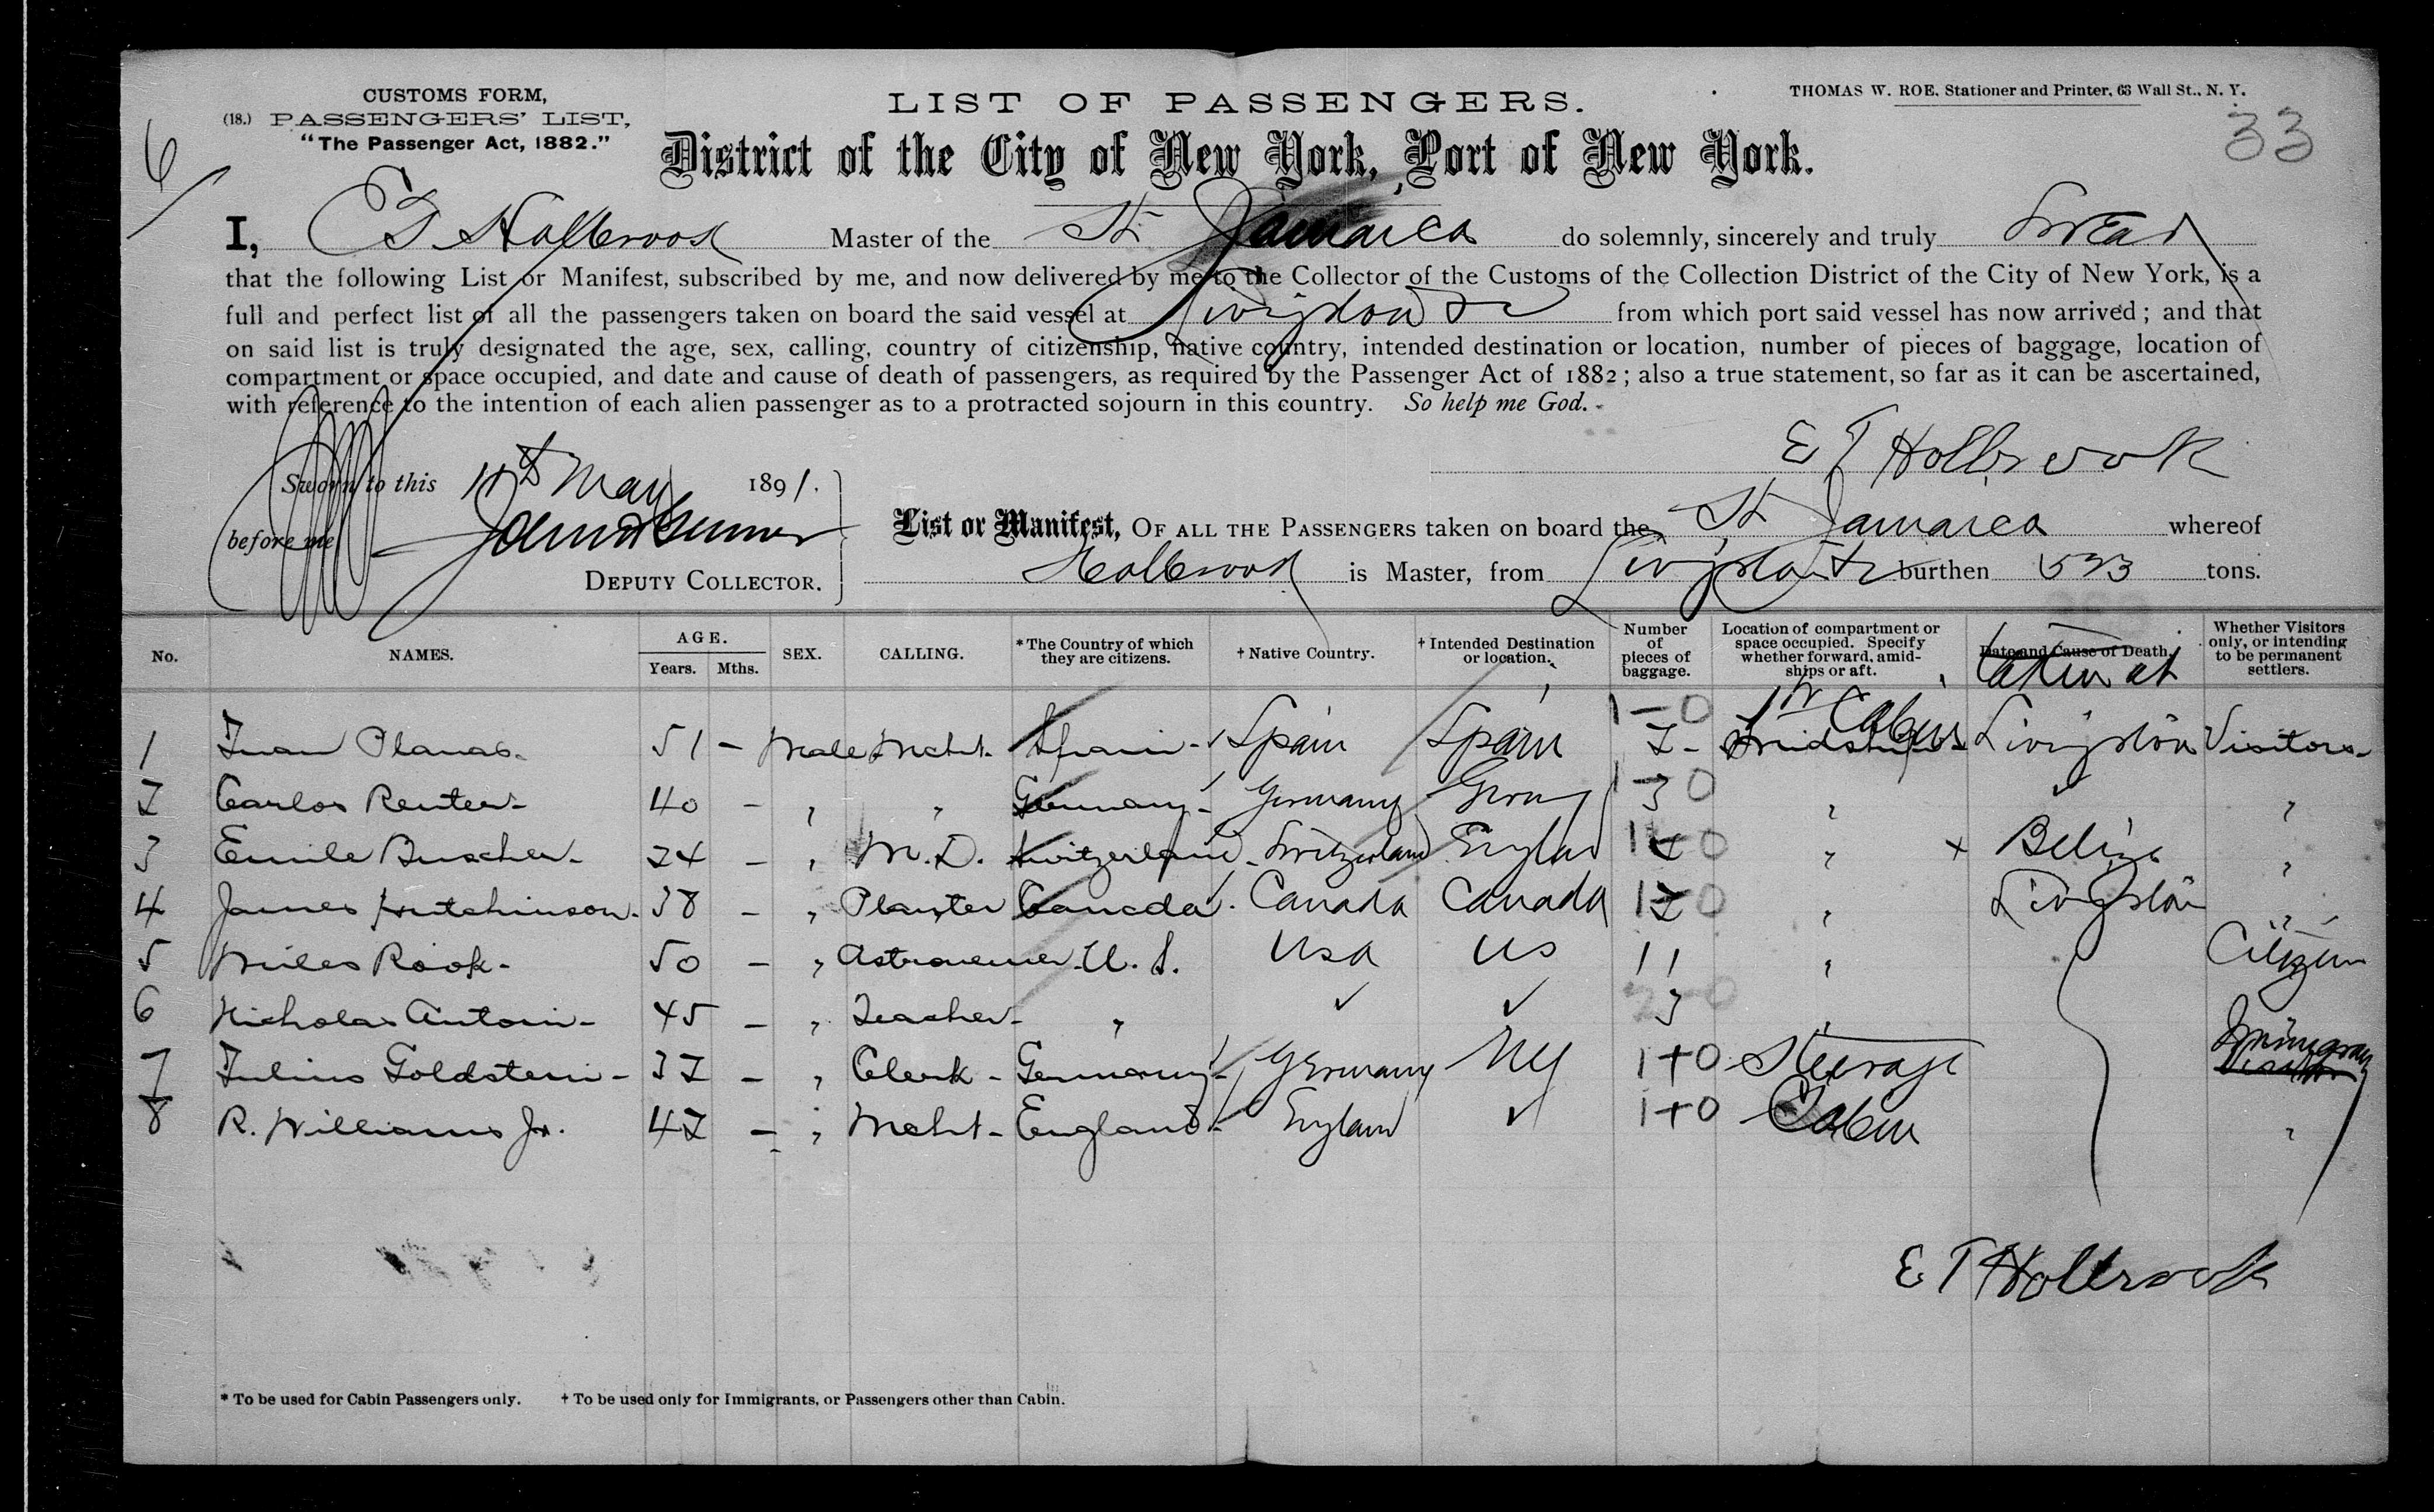 CUSTOMS FORM,
(18.) PASSENGERS' LIST,
"The Passenger Act, 1882."
LIST OF PASSENGERS.
THOMAS W. ROE, Stationer and Printer, 63 Wall St., N. Y.
33
6
District of the City of New York, Port of New York.
I, E T Holbrook Master of the St Jamaica do solemnly, sincerely and truly swear
that the following List or Manifest, subscribed by me, and now delivered by me to the Collector of the Customs of the Collection District of the City of New York, is a
full and perfect list of all the passengers taken on board the said vessel at Livingston from which port said vessel has now arrived; and that
on said list is truly designated the age, sex, calling, country of citizenship, native country, intended destination or location, number of pieces of baggage, location of
compartment or space occupied, and date and cause of death of passengers, as required by the Passenger Act of 1882; also a true statement, so far as it can be ascertained,
with reference to the intention of each alien passenger as to a protracted sojourn in this country. So help me God.
E T Holbrook
Sworn to this 11th May 1891.
before me
DEPUTY COLLECTOR.
List or Manifest, OF ALL THE PASSENGERS taken on board the St Jamaica whereof
Holbrook is Master, from Livingston burthen 533 tons.
No. NAMES. AGE. Years. Mths. SEX. CALLING. * The Country of which they are citizens. † Native Country. † Intended Destination or location. Number of pieces of baggage. Location of compartment or space occupied. Specify whether forward, amidships or aft. Date and Cause of Death. taken at Whether Visitors only, or intending to be permanent settlers.
1st Cabin
1 Juan Planas. 51 - Male Mcht. Spain - Spain Spain 2 - Midships Livingston Visitors
2 Carlos Renter - 40 - " " Germany - Germany Grmy 3 " ✓ "
3 Emile Buscher - 24 - " M.D. Switzerland - Switzerland England 4 " x Belize "
4 James Hutchinson. 38 - " Planter Canada. Canada Canada 2 " Livingston "
5 Miles Rock - 50 - " Astronomer U. S. USA US 11 " Citizen
6 Nicholas Antoin - 45 - " Teacher - " ✓ ✓ 3 "
7 Julius Goldstein - 32 - " Clerk - Germany - Germany NY 1+0 Steerage Immigrant
8 R. Williams Jr. 42 - " Mcht - England - England ✓ 1+0 Cabin "
E T Holbrook
* To be used for Cabin Passengers only. † To be used only for Immigrants, or Passengers other than Cabin.